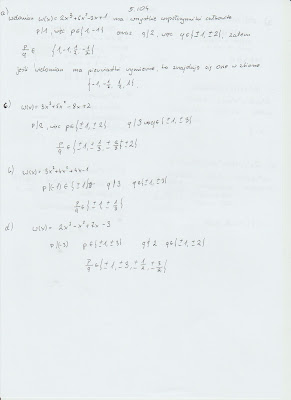 5.104
a)
Wielomian W(x) = 2x³+6x²-3x+1 ma wszystkie współczynniki całkowite
p|1, więc p∈{1,-1} oraz q|2, więc q∈{±1,±2}, zatem
p/q ∈ {1,-1, 1/2, -1/2}
jeśli wielomian ma pierwiastki wymierne, to znajdują się one w zbiorze
{-1, -1/2, 1/2, 1}
W(x) = 3x³+5x² -8x+2
p|2, więc p∈{±1,±2} q|3 więc q∈{±1,±3}
p/q ∈{±1, ±1/3, ±2/3, ±2}
c) W(x) = 3x³+4x²+4x-1
p|(-1) ∈{±1} q|3 q∈{±1,±3}
p/q ∈{±1, ±1/3}
d) W(x) = 2x³-x²+7x-3
p|(-3) p∈{±1,±3} q|2 q∈{±1,±2}
p/q ∈{±1, ±3, ±1/2, ±3/2}